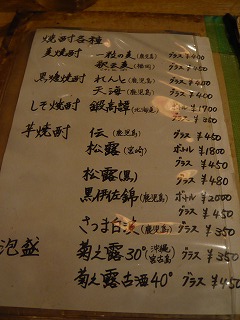 焼酎各種
麦焼酎 一粒の麦(鹿児島) グラス ¥400
(福岡) グラス ¥450
黒糖焼酎 れんと(鹿児島) グラス ¥400
天海(鹿児島) グラス ¥400
しそ焼酎 鍛高譚(北海道) ボトル ¥1700
グラス ¥350
芋焼酎 伝(鹿児島) グラス ¥450
松露(宮崎) ボトル ¥1800
グラス ¥450
松露(黒) グラス ¥480
黒伊佐錦(鹿児島) ボトル ¥2000
グラス ¥450
さつま白波(鹿児島) グラス ¥350
泡盛 菊之露30°(沖縄宮古島) グラス ¥350
菊之露古酒40° グラス ¥450